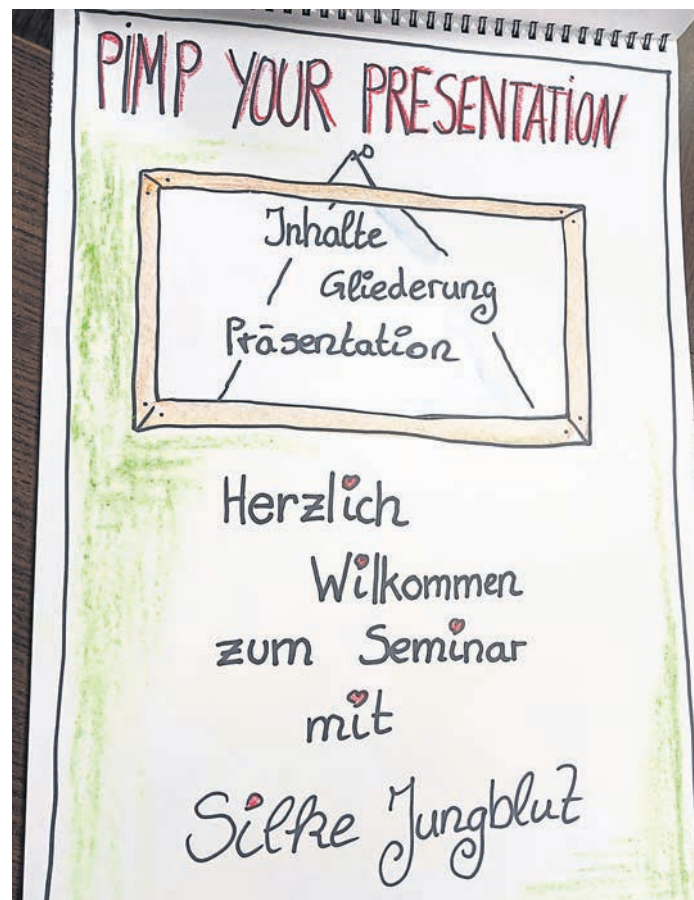 PIMP YOUR PRESENTATION
Inhalte
Gliederung
Präsentation
Herzlich
Wilkommen
zum Seminar
mit
Silke Jungblut